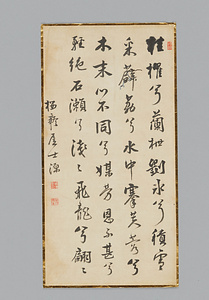 桂櫂兮蘭枻斲氷兮積雪
采薜荔兮水中搴芙蓉兮
木末心不同兮媒勞恩不甚兮
輕絶石瀬兮淺〻飛龍兮翩〻
居士